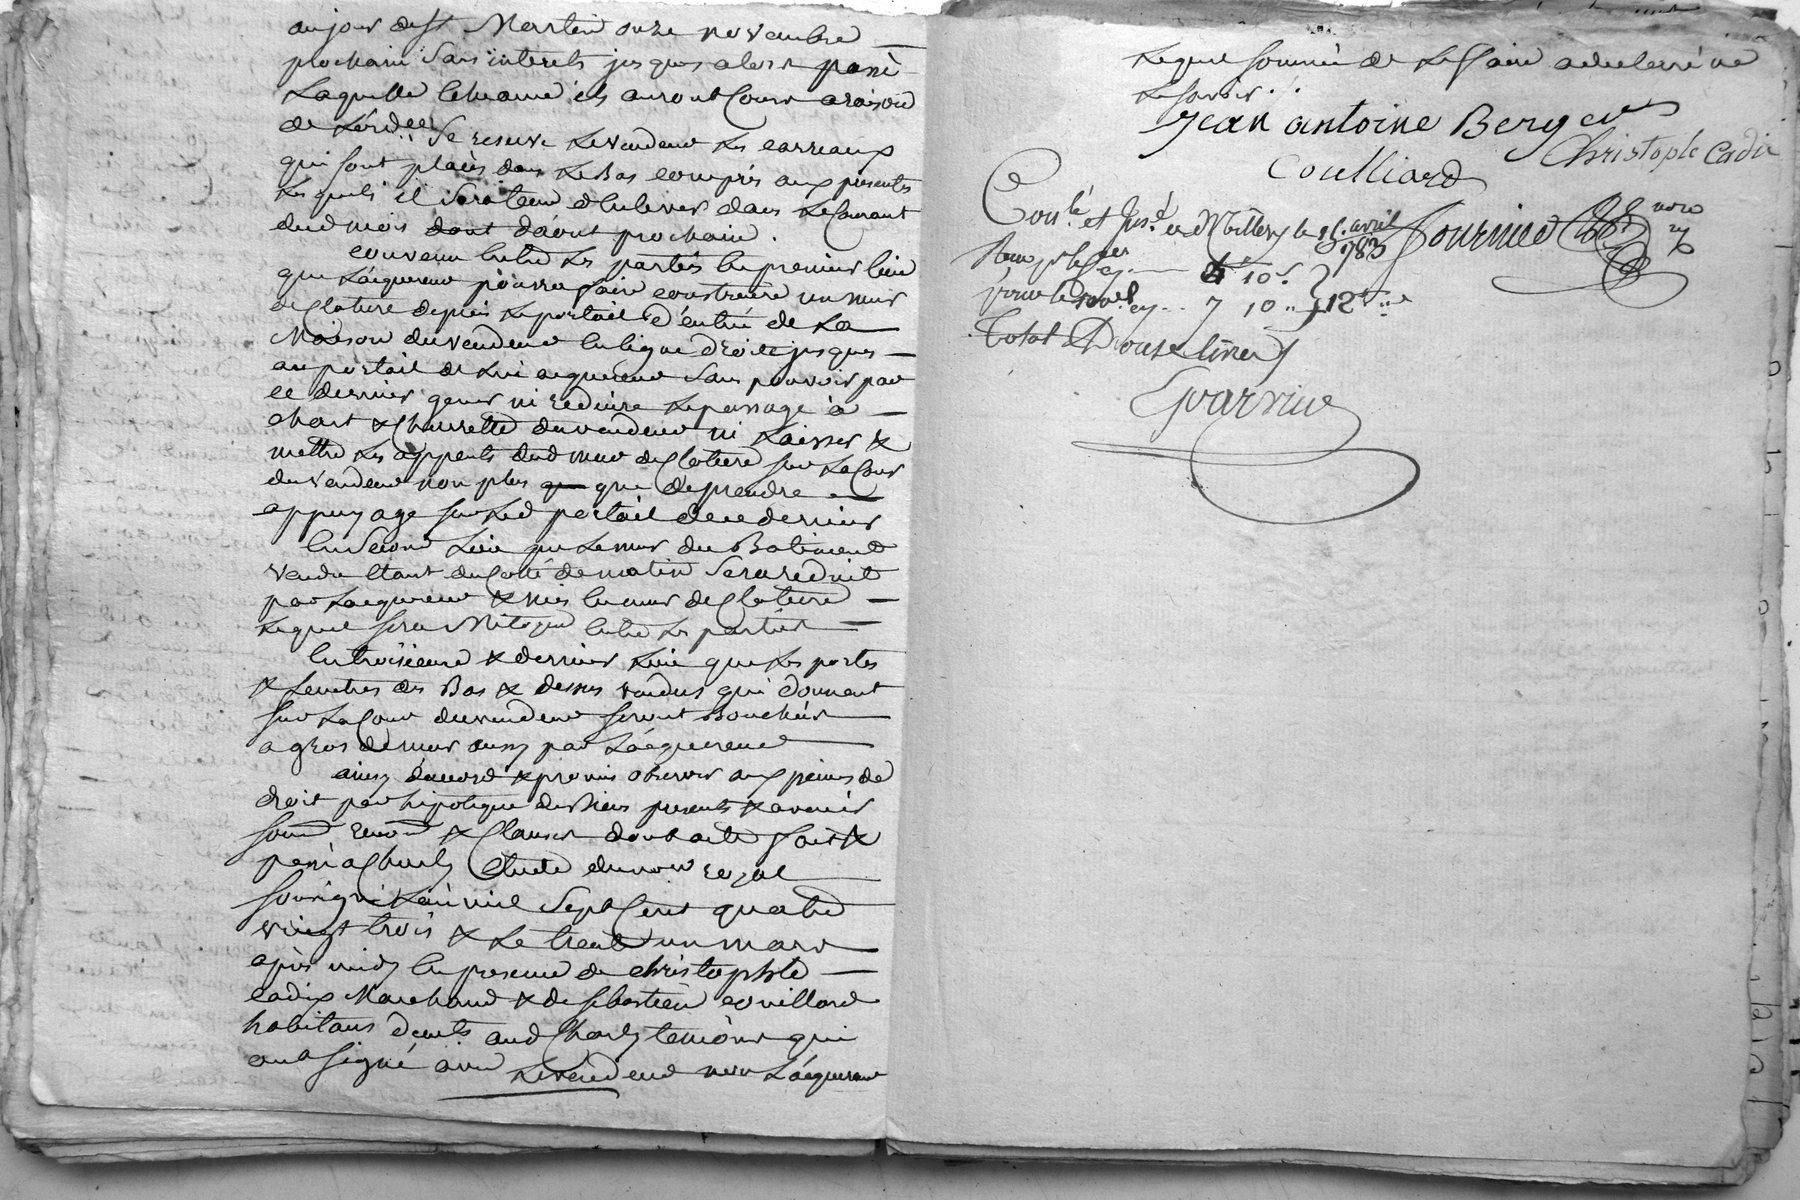 au jour de st Martin onze novembre
prochain sans interets jusques alors passé
laquelle echeance ils auront cours a raison
de l'ordce. Se reserve le vendeur les carreaux
qui sont placés dans le bas compris aux presentes
lesquels il sera tenu d'enlever dans le courant
dud mois dout d'aout prochain.
convenu entre les parties en premier lieu
que l'acquereur pourra faire construire un mur
de cloture depuis le portail d'entrée de la
Maison du vendeur en ligne droite jusques
au portail de lui acquereur sans pouvoir par
ce dernier gener ni reduire le passage à
chart & charrette du vendeur ni laisser &
mettre les appents dud mur de cloture sur la cour
du vendeur non plus que de prendre
appuyage sur led portail de ce dernier
En second lieu que le mur du Batiment
vendu etant du cotté de matin sera reduit
par lacquereur & mis en mur de cloture
lequel sera mitoyen entre les parties
En troisieme & dernier lieu que les portes
& fenetres des Bas & dessus vendus qui donnent
sur la cour du vendeur seront Bouchées
a gros de mur aussy par l'acquereur
ainsy d'accord & promis observer aux peines de
droit par hipoteque de Biens presents & avenir
soumon renonon & clauses dont acte fait &
passé a Charly Etude du nore royal
soussigné l'an mil sept cent quatre
vingt trois & le trente un mars
après midy en presence de christophle
cadix Marchand & de sebastien couillard
habitans deud. aud Charly temoins qui
ont signé avec le vendeur non l'acquereur
lequel sommé de le faire a declaré ne
le savoir.
Jean antoine Berger
Christople Cadix
Coulliard
Conlé et Insé a Millery le 15 avril
1783
Fournier
nore
10 s
7 10 12
Total Douse livres
Guarnier